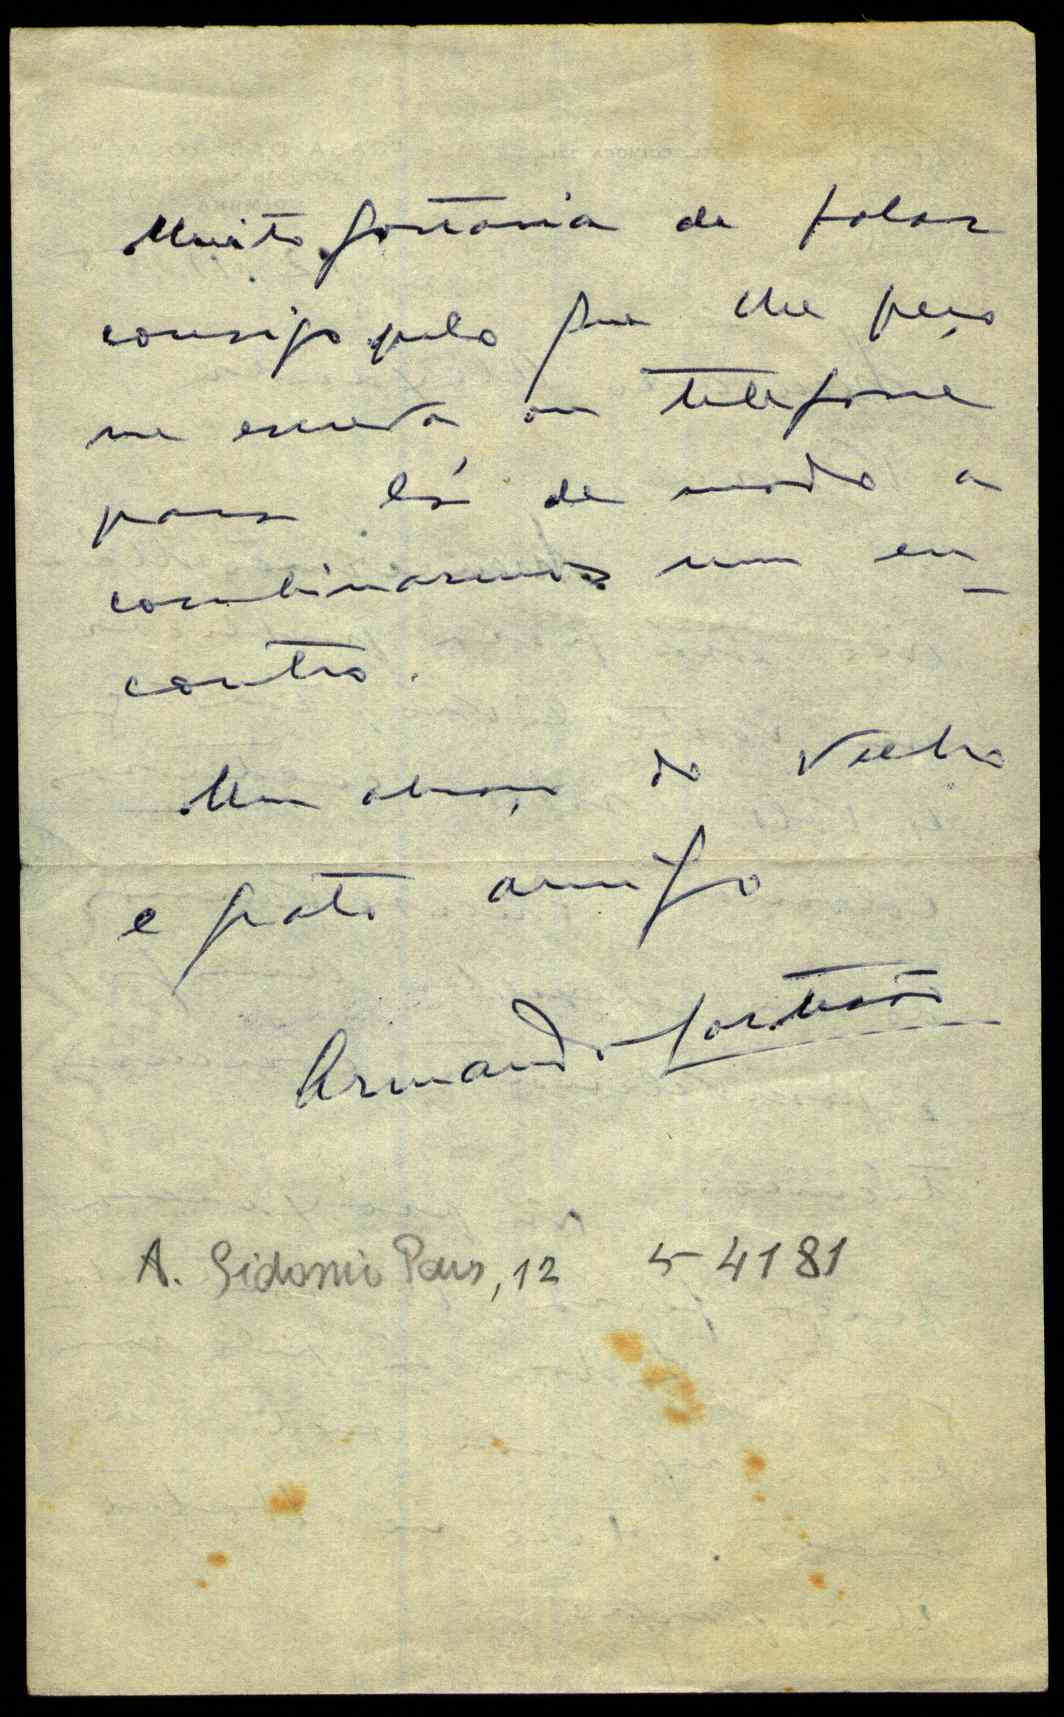 Muito gostaria de falar
consigo pelo que lhe peço
me escreva ou telefone
para lá de modo a
combinarmos um en-
contro.
Um abraço do velho
e grato amigo
Armando Cortesão
A. Sidonio Pais, 12 5-4181